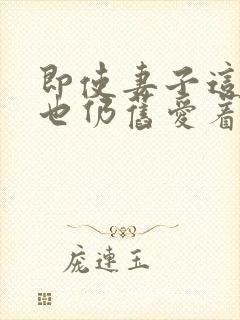 即使妻子這
也仍舊愛着
庞連玉